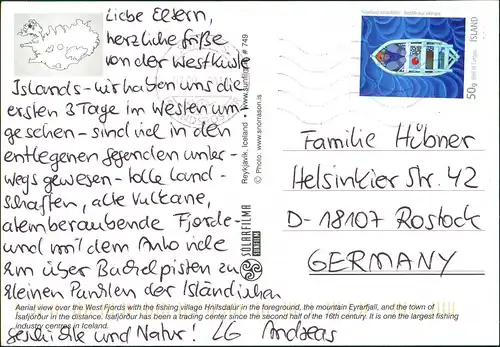 Liebe Eltern,
herzliche Grüße
von der Westküste
Islands - wir haben uns die
ersten 3 Tage im Westen um-
gesehen - sind viel in den
entlegenen Gegenden unter-
wegs gewesen - tolle Land-
schaften, alte Vulkane,
atemberaubende Fjorde -
und mit dem Auto viele
km über Buckelpisten zu
kleinen Punkten der Isländischen
Geschichte und Natur! LG Andreas
Aerial view over the West Fjords with the fishing village Hnífsdalur in the foreground, the mountain Eyrarfjall, and the town of
Ísafjörður in the distance. Ísafjörður has been a trading center since the second half of the 16th century. It is one of the largest fishing
industry centres in Iceland.
SOLARFILMA
Reykjavík, Iceland • www.sunfilma.is # 749
© Photo: www.snorrason.is
ÍSLAND
50g
Familie Hübner
Helsinkier Str. 42
D-18107 Rostock
GERMANY